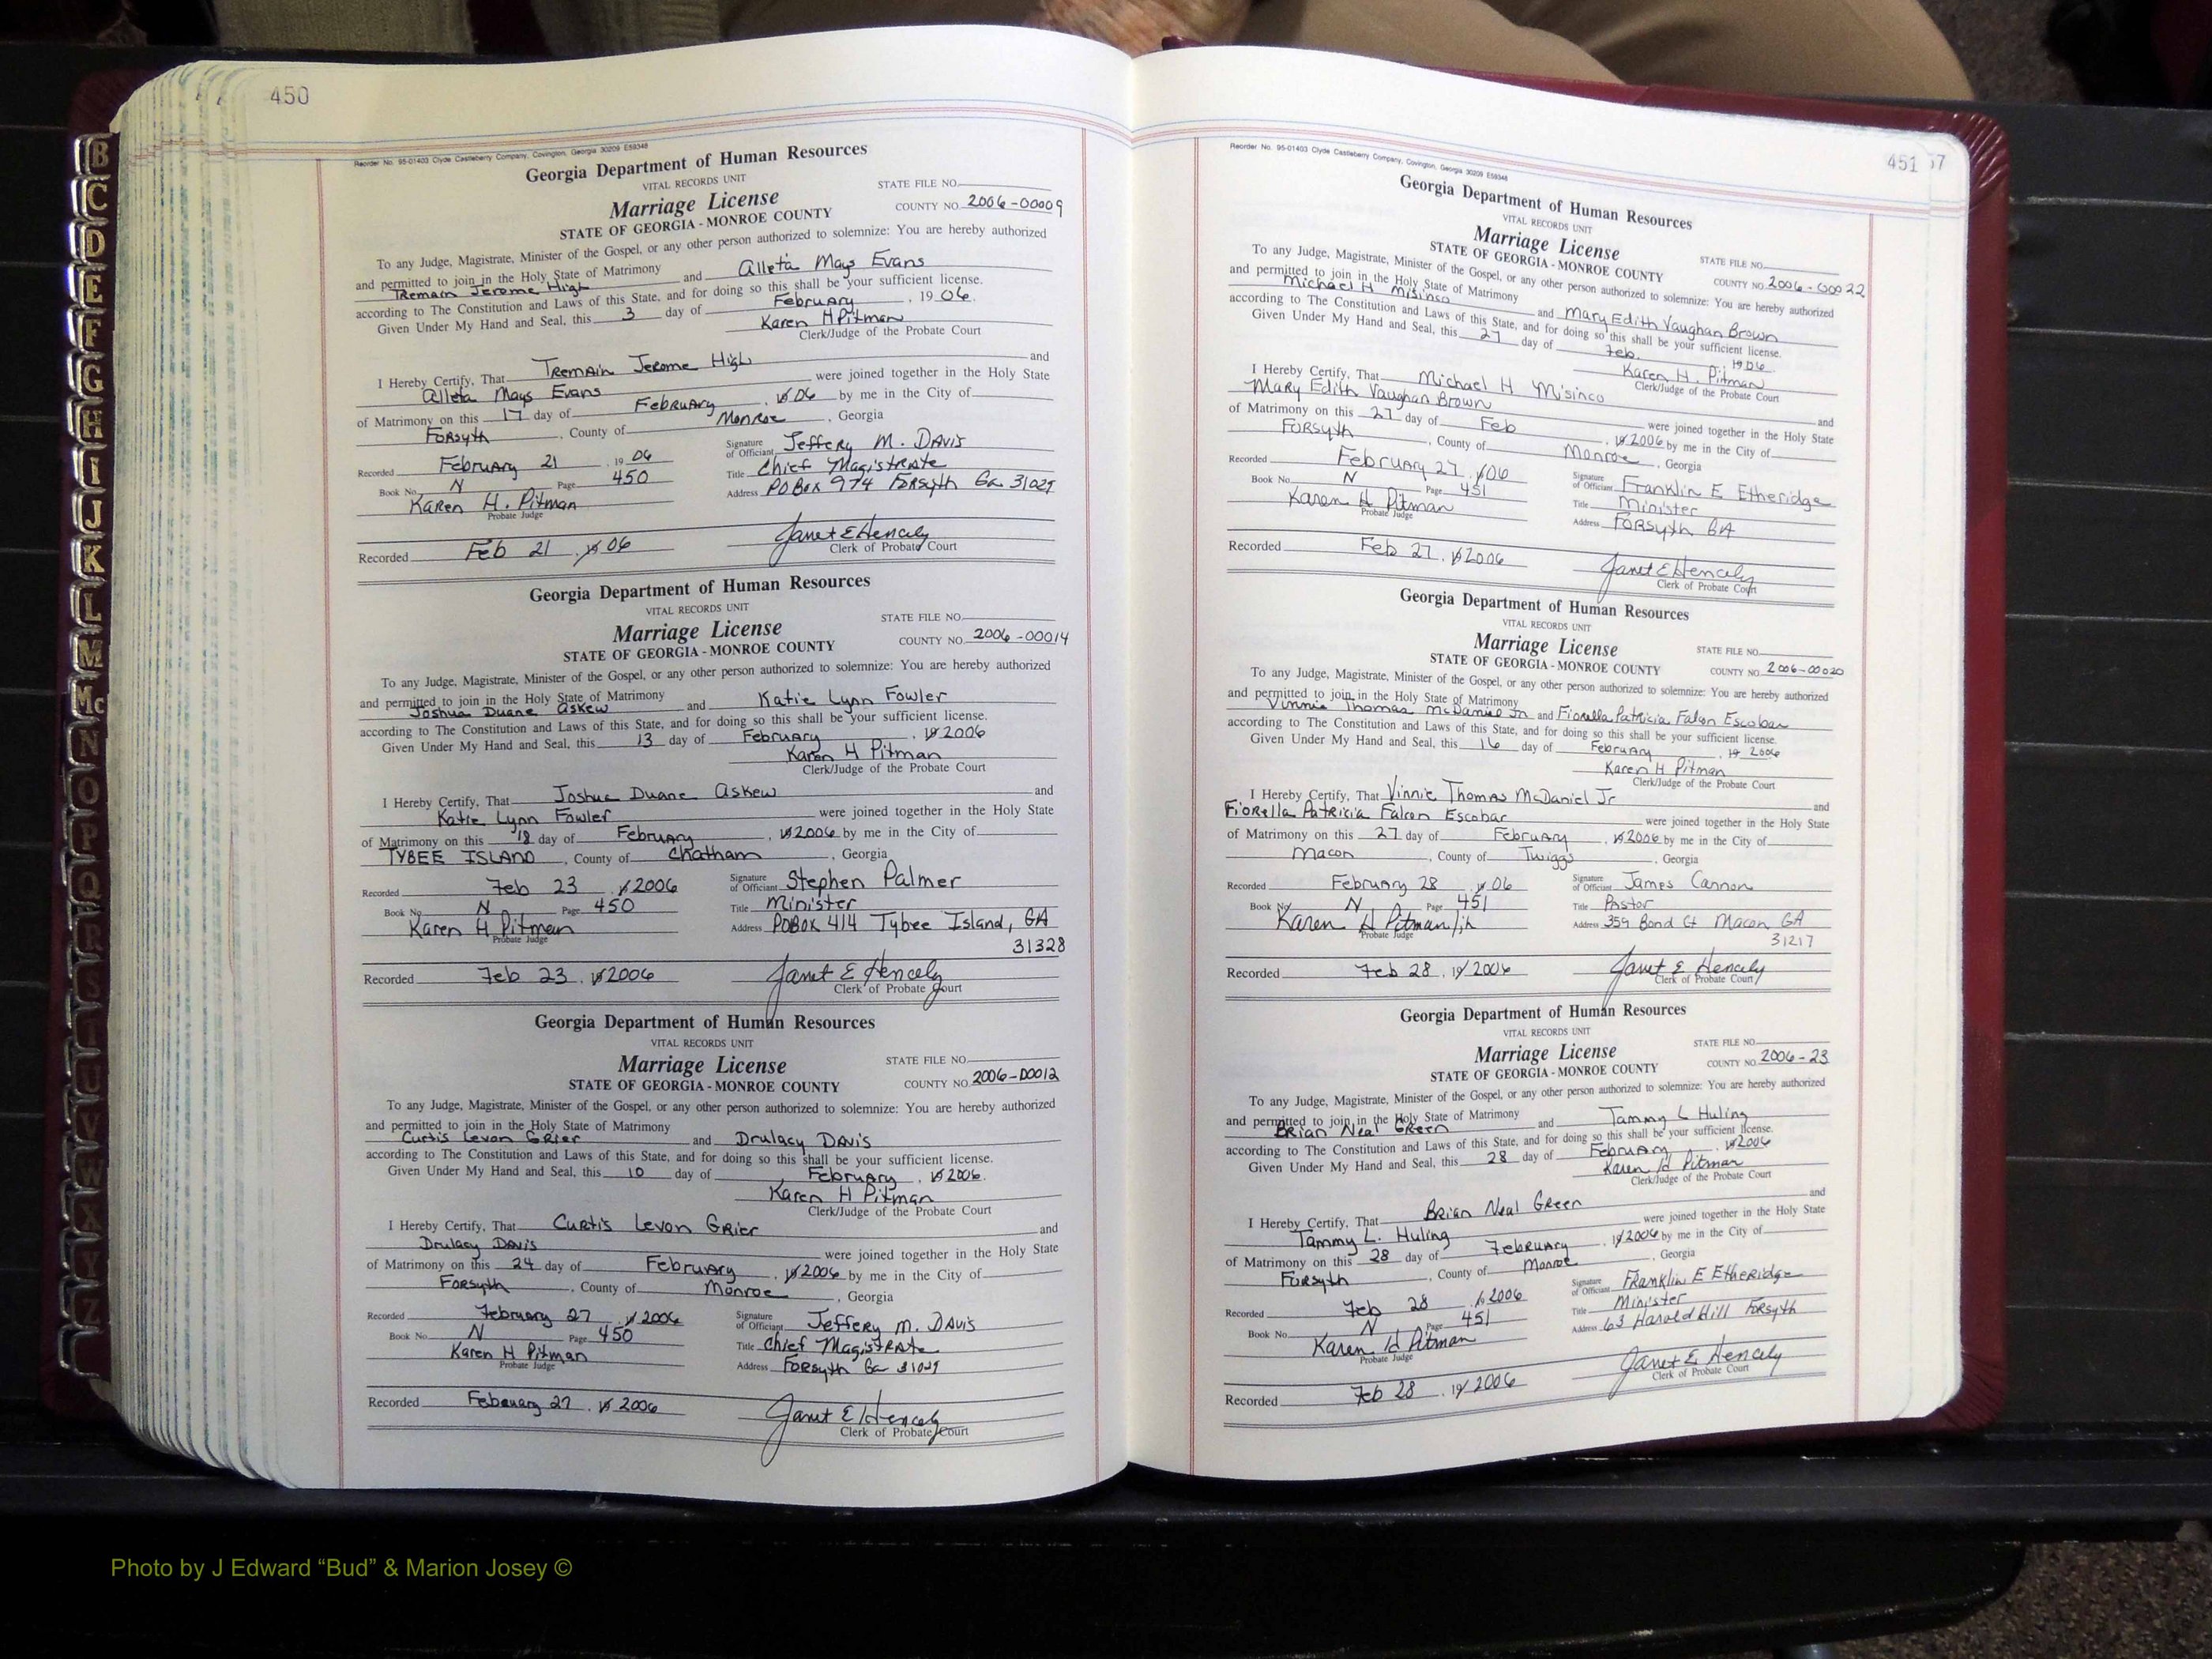 450
Reorder No. 95-01403 Clyde Castleberry Company, Covington, Georgia 30209 E59348
Georgia Department of Human Resources
VITAL RECORDS UNIT
Marriage License
STATE FILE NO.
STATE OF GEORGIA - MONROE COUNTY
COUNTY NO. 2006-00009
To any Judge, Magistrate, Minister of the Gospel, or any other person authorized to solemnize: You are hereby authorized
and permitted to join in the Holy State of Matrimony
Tremain Jerome High and Alleta Mays Evans
according to The Constitution and Laws of this State, and for doing so this shall be your sufficient license.
Given Under My Hand and Seal, this 3 day of February, 19 06.
Karen H Pitman
Clerk/Judge of the Probate Court
I Hereby Certify, That Tremain Jerome High and
Alleta Mays Evans were joined together in the Holy State
of Matrimony on this 17 day of February, 19 06 by me in the City of
Forsyth, County of Monroe, Georgia
Recorded February 21, 19 06
Signature of Officiant Jeffery M. Davis
Book No. N Page 450
Title Chief Magistrate
Karen H. Pitman
Probate Judge
Address PO Box 974 Forsyth Ga 31029
Recorded Feb 21, 19 06
Janet E Hencely
Clerk of Probate Court
Georgia Department of Human Resources
VITAL RECORDS UNIT
Marriage License
STATE FILE NO.
STATE OF GEORGIA - MONROE COUNTY
COUNTY NO. 2006-00014
To any Judge, Magistrate, Minister of the Gospel, or any other person authorized to solemnize: You are hereby authorized
and permitted to join in the Holy State of Matrimony
Joshua Duane Askew and Katie Lynn Fowler
according to The Constitution and Laws of this State, and for doing so this shall be your sufficient license.
Given Under My Hand and Seal, this 13 day of February, 19 2006
Karen H Pitman
Clerk/Judge of the Probate Court
I Hereby Certify, That Joshua Duane Askew and
Katie Lynn Fowler were joined together in the Holy State
of Matrimony on this 18 day of February, 19 2006 by me in the City of
TYBEE ISLAND, County of Chatham, Georgia
Recorded Feb 23, 19 2006
Signature of Officiant Stephen Palmer
Book No. N Page 450
Title Minister
Karen H Pitman
Probate Judge
Address POBox 414 Tybee Island, GA
31328
Recorded Feb 23, 19 2006
Janet E Hencely
Clerk of Probate Court
Georgia Department of Human Resources
VITAL RECORDS UNIT
Marriage License
STATE FILE NO.
STATE OF GEORGIA - MONROE COUNTY
COUNTY NO. 2006-00012
To any Judge, Magistrate, Minister of the Gospel, or any other person authorized to solemnize: You are hereby authorized
and permitted to join in the Holy State of Matrimony
Curtis Levon Grier and Drulacy Davis
according to The Constitution and Laws of this State, and for doing so this shall be your sufficient license.
Given Under My Hand and Seal, this 10 day of February, 19 2006.
Karen H Pitman
Clerk/Judge of the Probate Court
I Hereby Certify, That Curtis Levon Grier and
Drulacy Davis were joined together in the Holy State
of Matrimony on this 24 day of February, 19 2006 by me in the City of
Forsyth, County of Monroe, Georgia
Recorded February 27, 19 2006
Signature of Officiant Jeffery M. Davis
Book No. N Page 450
Title Chief Magistrate
Karen H Pitman
Probate Judge
Address Forsyth Ga 31029
Recorded Febeuary 27, 19 2006
Janet E Hencely
Clerk of Probate Court
451 57
Reorder No. 95-01403 Clyde Castleberry Company, Covington, Georgia 30209 E59348
Georgia Department of Human Resources
VITAL RECORDS UNIT
Marriage License
STATE FILE NO.
STATE OF GEORGIA - MONROE COUNTY
COUNTY NO. 2006-00022
To any Judge, Magistrate, Minister of the Gospel, or any other person authorized to solemnize: You are hereby authorized
and permitted to join in the Holy State of Matrimony
Michael H Misinco and Mary Edith Vaughan Brown
according to The Constitution and Laws of this State, and for doing so this shall be your sufficient license.
Given Under My Hand and Seal, this 27 day of Feb., 19 06.
Karen H. Pitman
Clerk/Judge of the Probate Court
I Hereby Certify, That Michael H Misinco and
Mary Edith Vaughan Brown were joined together in the Holy State
of Matrimony on this 27 day of Feb, 19 2006 by me in the City of
Forsyth, County of Monroe, Georgia
Recorded February 27, 19 06
Signature of Officiant Franklin E Etheridge
Book No. N Page 451
Title Minister
Karen H Pitman
Probate Judge
Address Forsyth GA
Recorded Feb 27, 19 2006
Janet E Hencely
Clerk of Probate Court
Georgia Department of Human Resources
VITAL RECORDS UNIT
Marriage License
STATE FILE NO.
STATE OF GEORGIA - MONROE COUNTY
COUNTY NO. 2006-00020
To any Judge, Magistrate, Minister of the Gospel, or any other person authorized to solemnize: You are hereby authorized
and permitted to join in the Holy State of Matrimony
Vinnie Thomas McDaniel Jr and Fiorella Patricia Falcon Escobar
according to The Constitution and Laws of this State, and for doing so this shall be your sufficient license.
Given Under My Hand and Seal, this 16 day of February, 19 2006
Karen H Pitman
Clerk/Judge of the Probate Court
I Hereby Certify, That Vinnie Thomas McDaniel Jr and
Fiorella Patricia Falcon Escobar were joined together in the Holy State
of Matrimony on this 27 day of February, 19 2006 by me in the City of
Macon, County of Twiggs, Georgia
Recorded February 28, 19 06
Signature of Officiant James Cannon
Book No. N Page 451
Title Pastor
Karen H Pitman/jh
Probate Judge
Address 359 Bond Ct Macon GA
31217
Recorded Feb 28, 19 2006
Janet E Hencely
Clerk of Probate Court
Georgia Department of Human Resources
VITAL RECORDS UNIT
Marriage License
STATE FILE NO.
STATE OF GEORGIA - MONROE COUNTY
COUNTY NO. 2006-23
To any Judge, Magistrate, Minister of the Gospel, or any other person authorized to solemnize: You are hereby authorized
and permitted to join in the Holy State of Matrimony
Brian Neal Green and Tammy L Huling
according to The Constitution and Laws of this State, and for doing so this shall be your sufficient license.
Given Under My Hand and Seal, this 28 day of February, 19 2006
Karen H Pitman
Clerk/Judge of the Probate Court
I Hereby Certify, That Brian Neal Green and
Tammy L. Huling were joined together in the Holy State
of Matrimony on this 28 day of February, 19 2006 by me in the City of
Forsyth, County of Monroe, Georgia
Recorded Feb 28, 19 2006
Signature of Officiant Franklin E Etheridge
Book No. N Page 451
Title Minister
Karen H Pitman
Probate Judge
Address 63 Harold Hill Forsyth
Recorded Feb 28, 19 2006
Janet E Hencely
Clerk of Probate Court
B
C
D
E
F
G
H
I
J
K
L
M
Mc
N
O
P
Q
R
S
T
U
V
W
X
Y
Z
Photo by J Edward “Bud” & Marion Josey ©